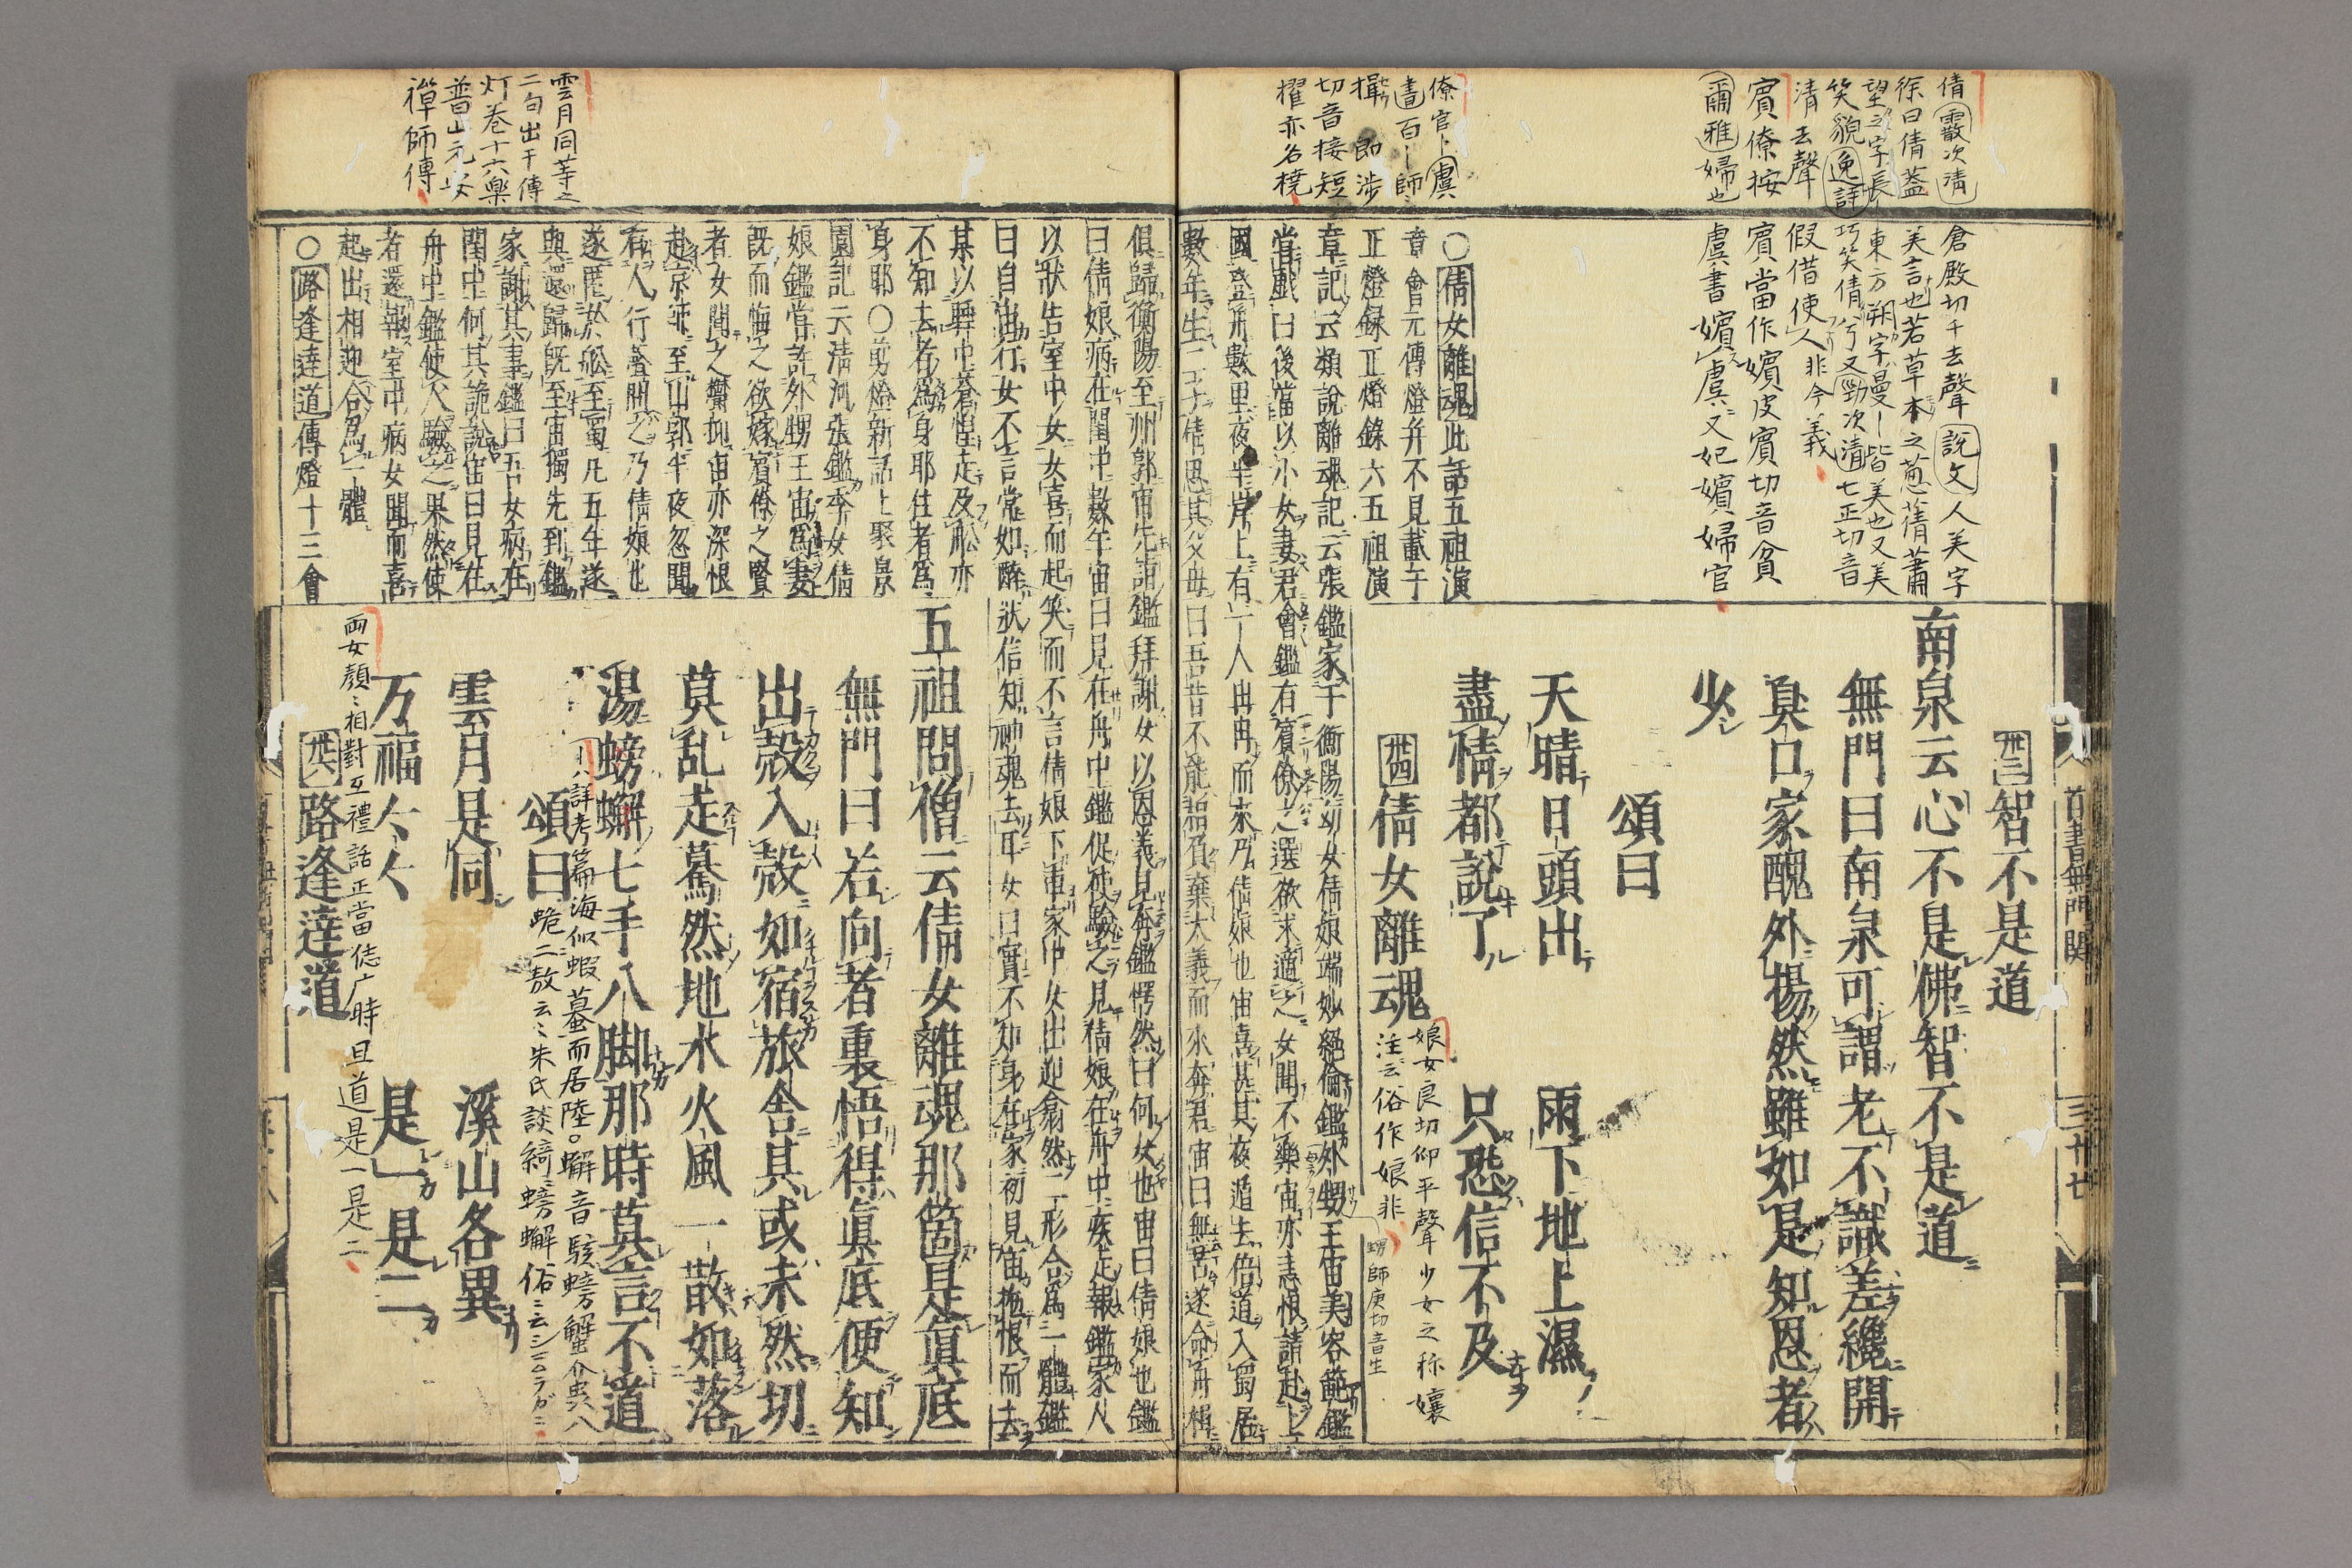 倩霰次清
徐曰倩蓋
望之字長
笑貌逸詩
清去聲
賓僚按
爾雅婦也
倉殿切千去聲說文人美字
美言也若草木之葱蒨蕭
東方朔字曼丨皆美也又美
巧笑倩兮又勁次清七正切音
假借使人非今義
賓當作嬪皮賓切音貧
虞書嬪虞又妃嬪婦官
僚官丨虞
書百丨師
揖即涉
切音接短
櫂亦名橈
卅三智不是道
南泉云心不是佛智不是道
無門曰南泉可謂老不識羞纔開
臭口家醜外揚然雖如是知恩者
少
頌曰
天晴日頭出
雨下地上濕
盡情都說了
只恐信不及
卅四倩女離魂
娘女良切仰平聲少女之称孃
注云俗作娘非
甥師庚切音生
○倩女離魂此話五祖演
章會元傳燈并不見載于
正燈録正燈錄六五祖演
章記云類說離魂記云張鑑家于衡陽幼女倩娘端妙絕倫鑑外甥王宙美容範鑑
嘗戲曰後當以小女妻君會鑑有賓僚之選欲求適之女聞不樂宙亦恚恨請赴上
國登舟數里夜半岸上有一人冉冉而來乃倩娘也宙喜甚其夜遁去倍道入蜀居
數年生二子倩思其父母曰吾昔不能相負棄大義而來奔君宙曰無苦遂命舟楫
俱歸衡陽至州郭宙先詣鑑拜謝女以恩義見奔鑑愕然曰何女也宙曰倩娘也鑑
曰倩娘病在閨中數年宙曰見在舟中鑑促使驗之見倩娘在舟中疾走報鑑家人
以狀告室中女女喜而起笑而不言倩娘下車家中女出迎翕然二形合爲一體鑑
曰自宙行女不言常如醉狀信知神魂去耳女曰實不知身在家初見宙抱恨而去
某以睡中蒼惶走及舩亦
不知去者爲身耶住者爲
身耶○剪燈新話上聚景
園記云清河張鑑季女倩
娘鑑嘗許外甥王宙爲妻
既而悔之欲嫁賓僚之賢
者女聞之鬱抑宙亦深恨
赴京師至山郭半夜忽聞
有人行聲問之乃倩娘也
遂匿於舩至蜀凡五年遂
與還歸既至宙獨先到鑑
家謝其事鑑曰吾女病在
閨中何其詭說宙曰見在
舟中鑑使人驗之果然使
者還報室中病女聞而喜
起出相迎合爲一體
○路逢達道傳燈十三會
五祖問僧云倩女離魂那箇是眞底
無門曰若向者裏悟得眞底便知
出殼入殼如宿旅舍其或未然切
莫乱走驀然地水火風一散如落
湯螃蠏七手八脚那時莫言不道
頌曰
雲月是同
溪山各異
万福々々
是一是二
卅六路逢達道
雲月同等之
二句出于傳
灯卷十六樂
普山元安
禪師傳
詳考篇海似蝦蟇而居陸。蠏音駭螃蟹介虫八
跪二敖云云朱氏談綺螃蠏俗云シヤコラガニ
兩女顏々相對互禮話正當恁广時且道是一是二
首書無門関
三十七